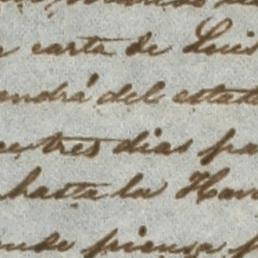 carta de Luis
endrá del estado
tres dias pa
hasta la Hav
piensa p